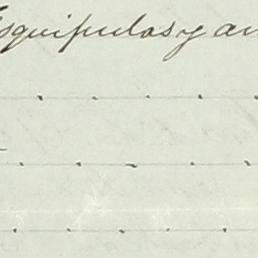 Esquipulas y an